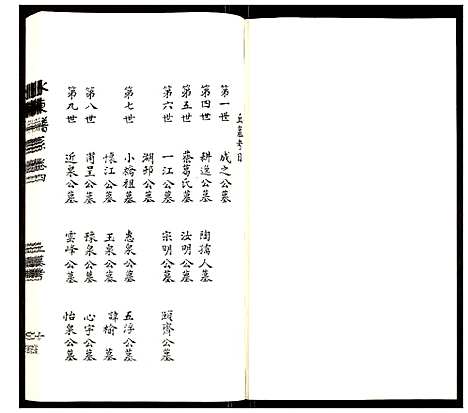 丘墓考目
第一世 成之公墓
第四世 耕逸公墓 陶孺人墓
第五世 蔡葛氏墓 汝明公墓
第六世 一江公墓 宗明公墓 頤齋公墓
湖邨公墓
第七世 小橋祖墓 惠泉公墓 五浮公墓
懷江公墓 玉泉公墓 諱榆墓
第八世 甫呈公墓 稼泉公墓 心宇公墓
第九世 近泉公墓 雲峰公墓 怡泉公墓